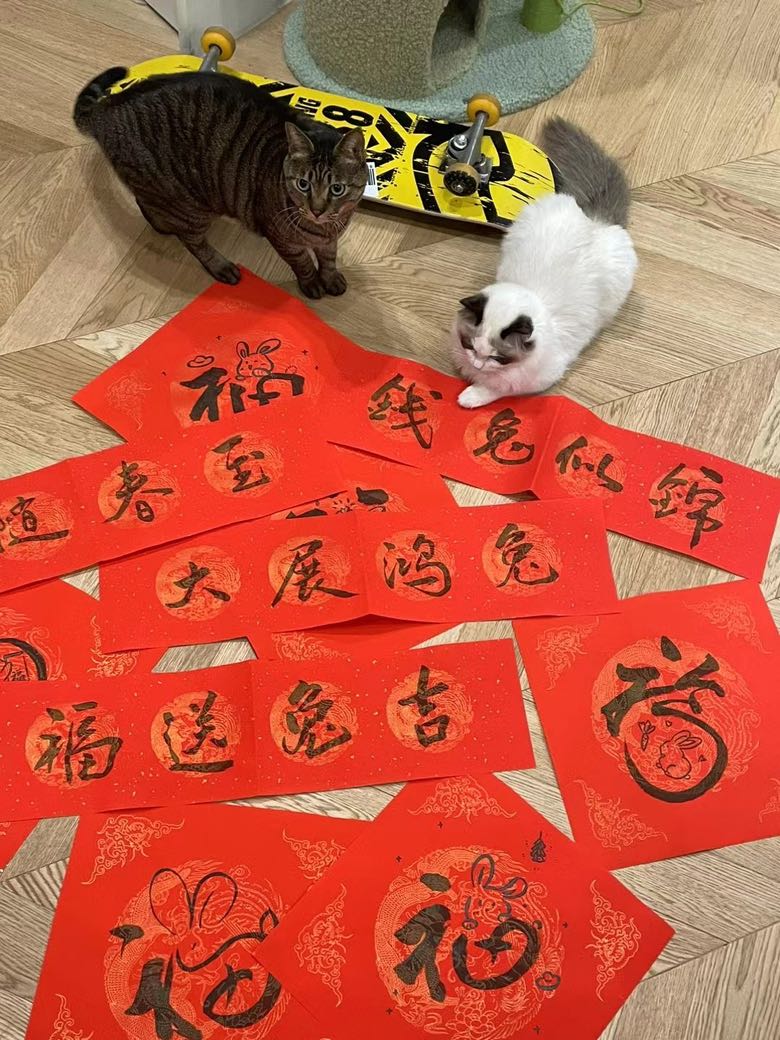 福
錢兔似錦
随春至
大展鸿兔
福送兔吉
福
福
福
8